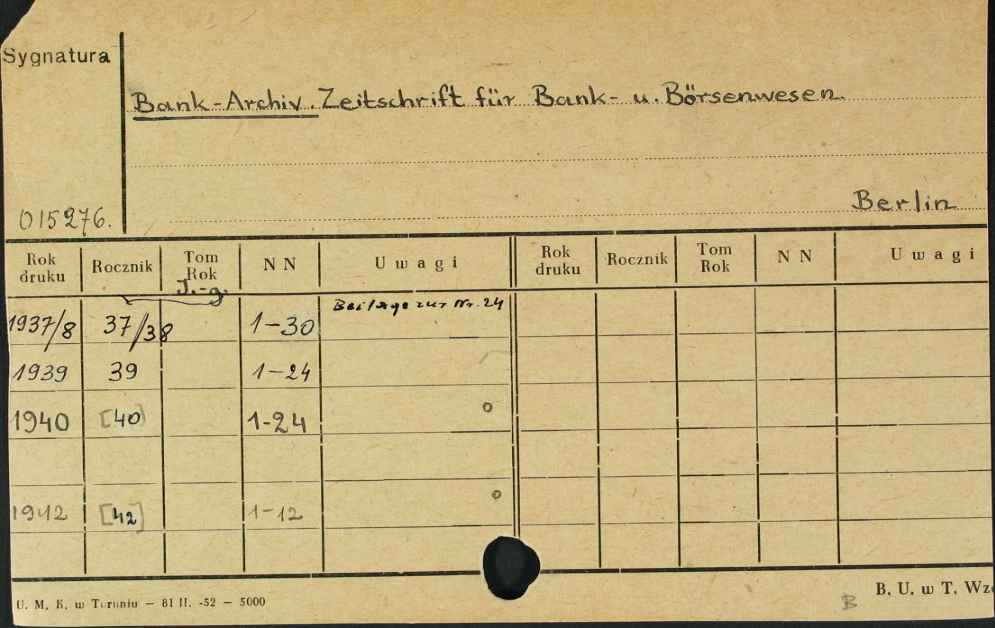 Sygnatura
Bank-Archiv. Zeitschrift für Bank- u. Börsenwesen.
Berlin
015276.
Rok druku Rocznik Tom Rok NN Uwagi Rok druku Rocznik Tom Rok NN Uwagi
J.-g.
Beilage zur Nr. 24
1937/8 37/38 1-30
1939 39 1-24
1940 [40] 1-24
1942 [42] 1-12
U. M. K. w Toruniu — 81 II. -52 — 5000
B. U. w T.
B